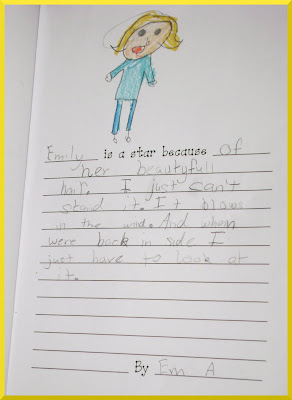 Emily is a star because of
her beautyfull
hair. I just can't
stand it. It blows
in the wind. And when
were back in side I
just have to look at
it.
By Em A